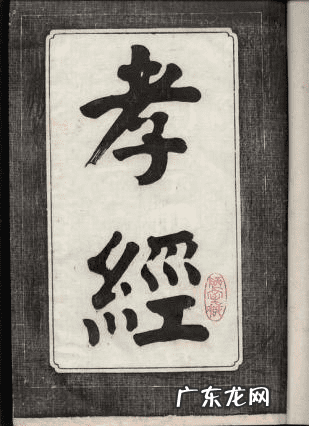 孝經
广东龙网